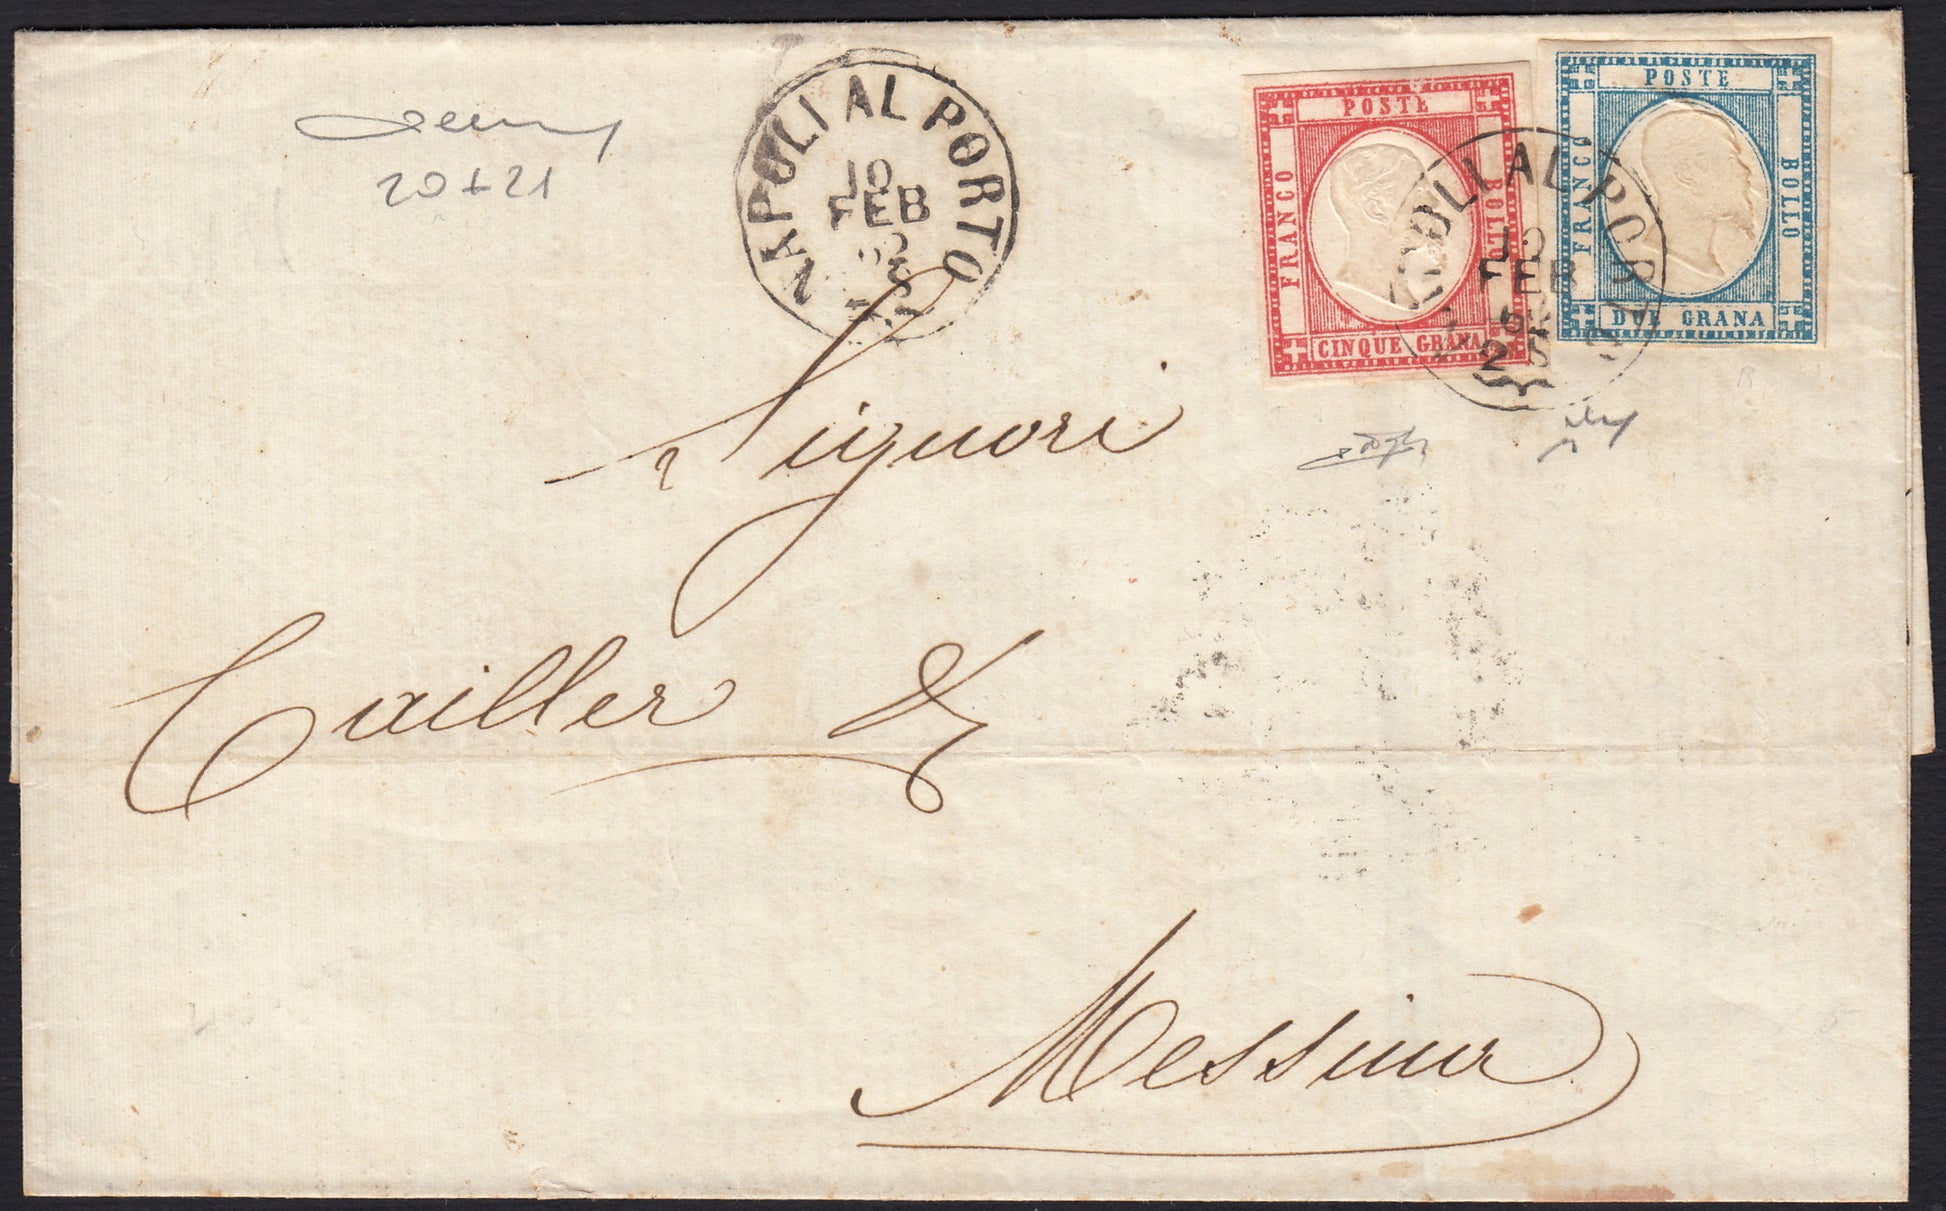 20 + 21
NAPOLI AL PORTO
10
FEB
POSTE
FRANCO
BOLLO
CINQUE GRANA
POSTE
FRANCO
BOLLO
DUE GRANA
NAPOLI AL PORTO
10
FEB
62
2S
Signori
Cailler & 
Messina